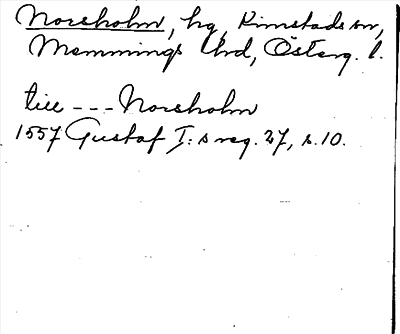 Norsholm, hg, Kimstads sn,
Memmings hrd, Österg. l.
till --- Norsholm
1557 Gustaf I:s reg. 27, s. 10.